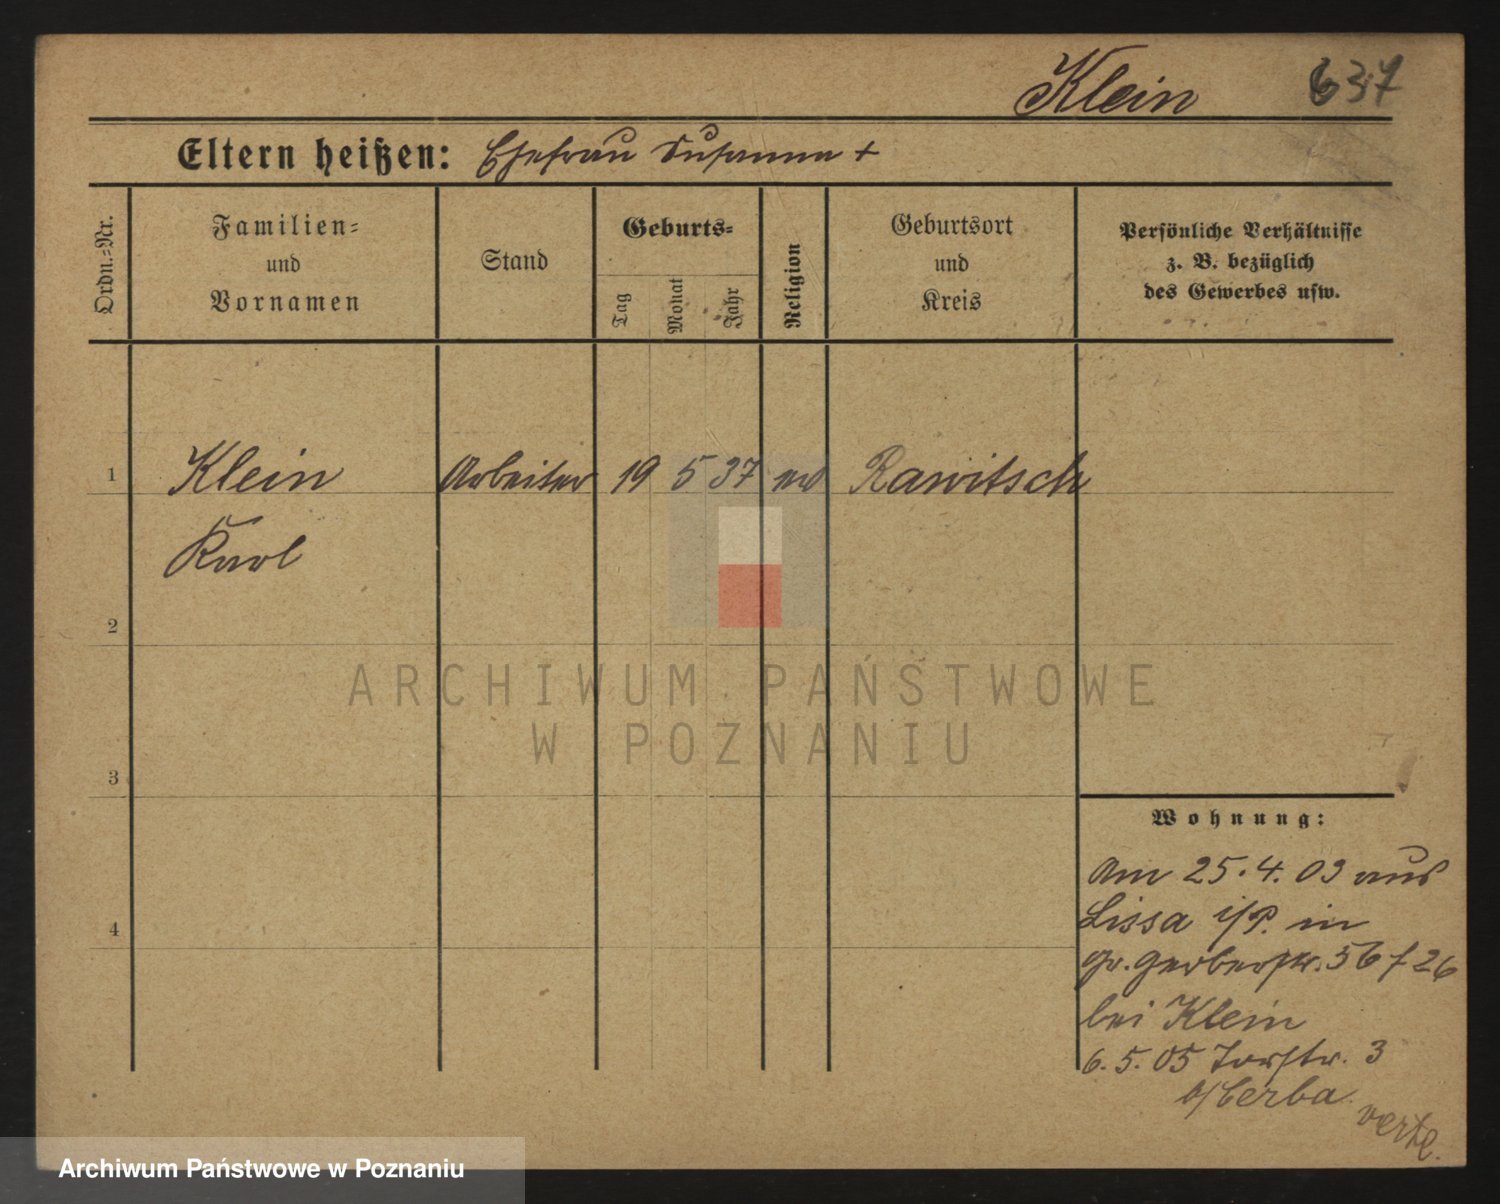 Klein 637
Eltern heißen: Ehefrau Susanna +
Ordn.=Nr.
Familien=
und
Vornamen
Stand
Geburts=
Tag
Monat
Jahr
Religion
Geburtsort
und
Kreis
Persönliche Verhältnisse
z. B. bezüglich
des Gewerbes usw.
1 Klein Arbeiter 19 5 37 ev Rawitsch
Karl
2
3
4
Wohnung:
Am 25.4.03 aus
Lissa i/P. in
gr. Gerberstr. 56 f 26
bei Klein
6.5.05 Torstr. 3
b/Cerba
verte.
ARCHIWUM PAŃSTWOWE
W POZNANIU
Archiwum Państwowe w Poznaniu